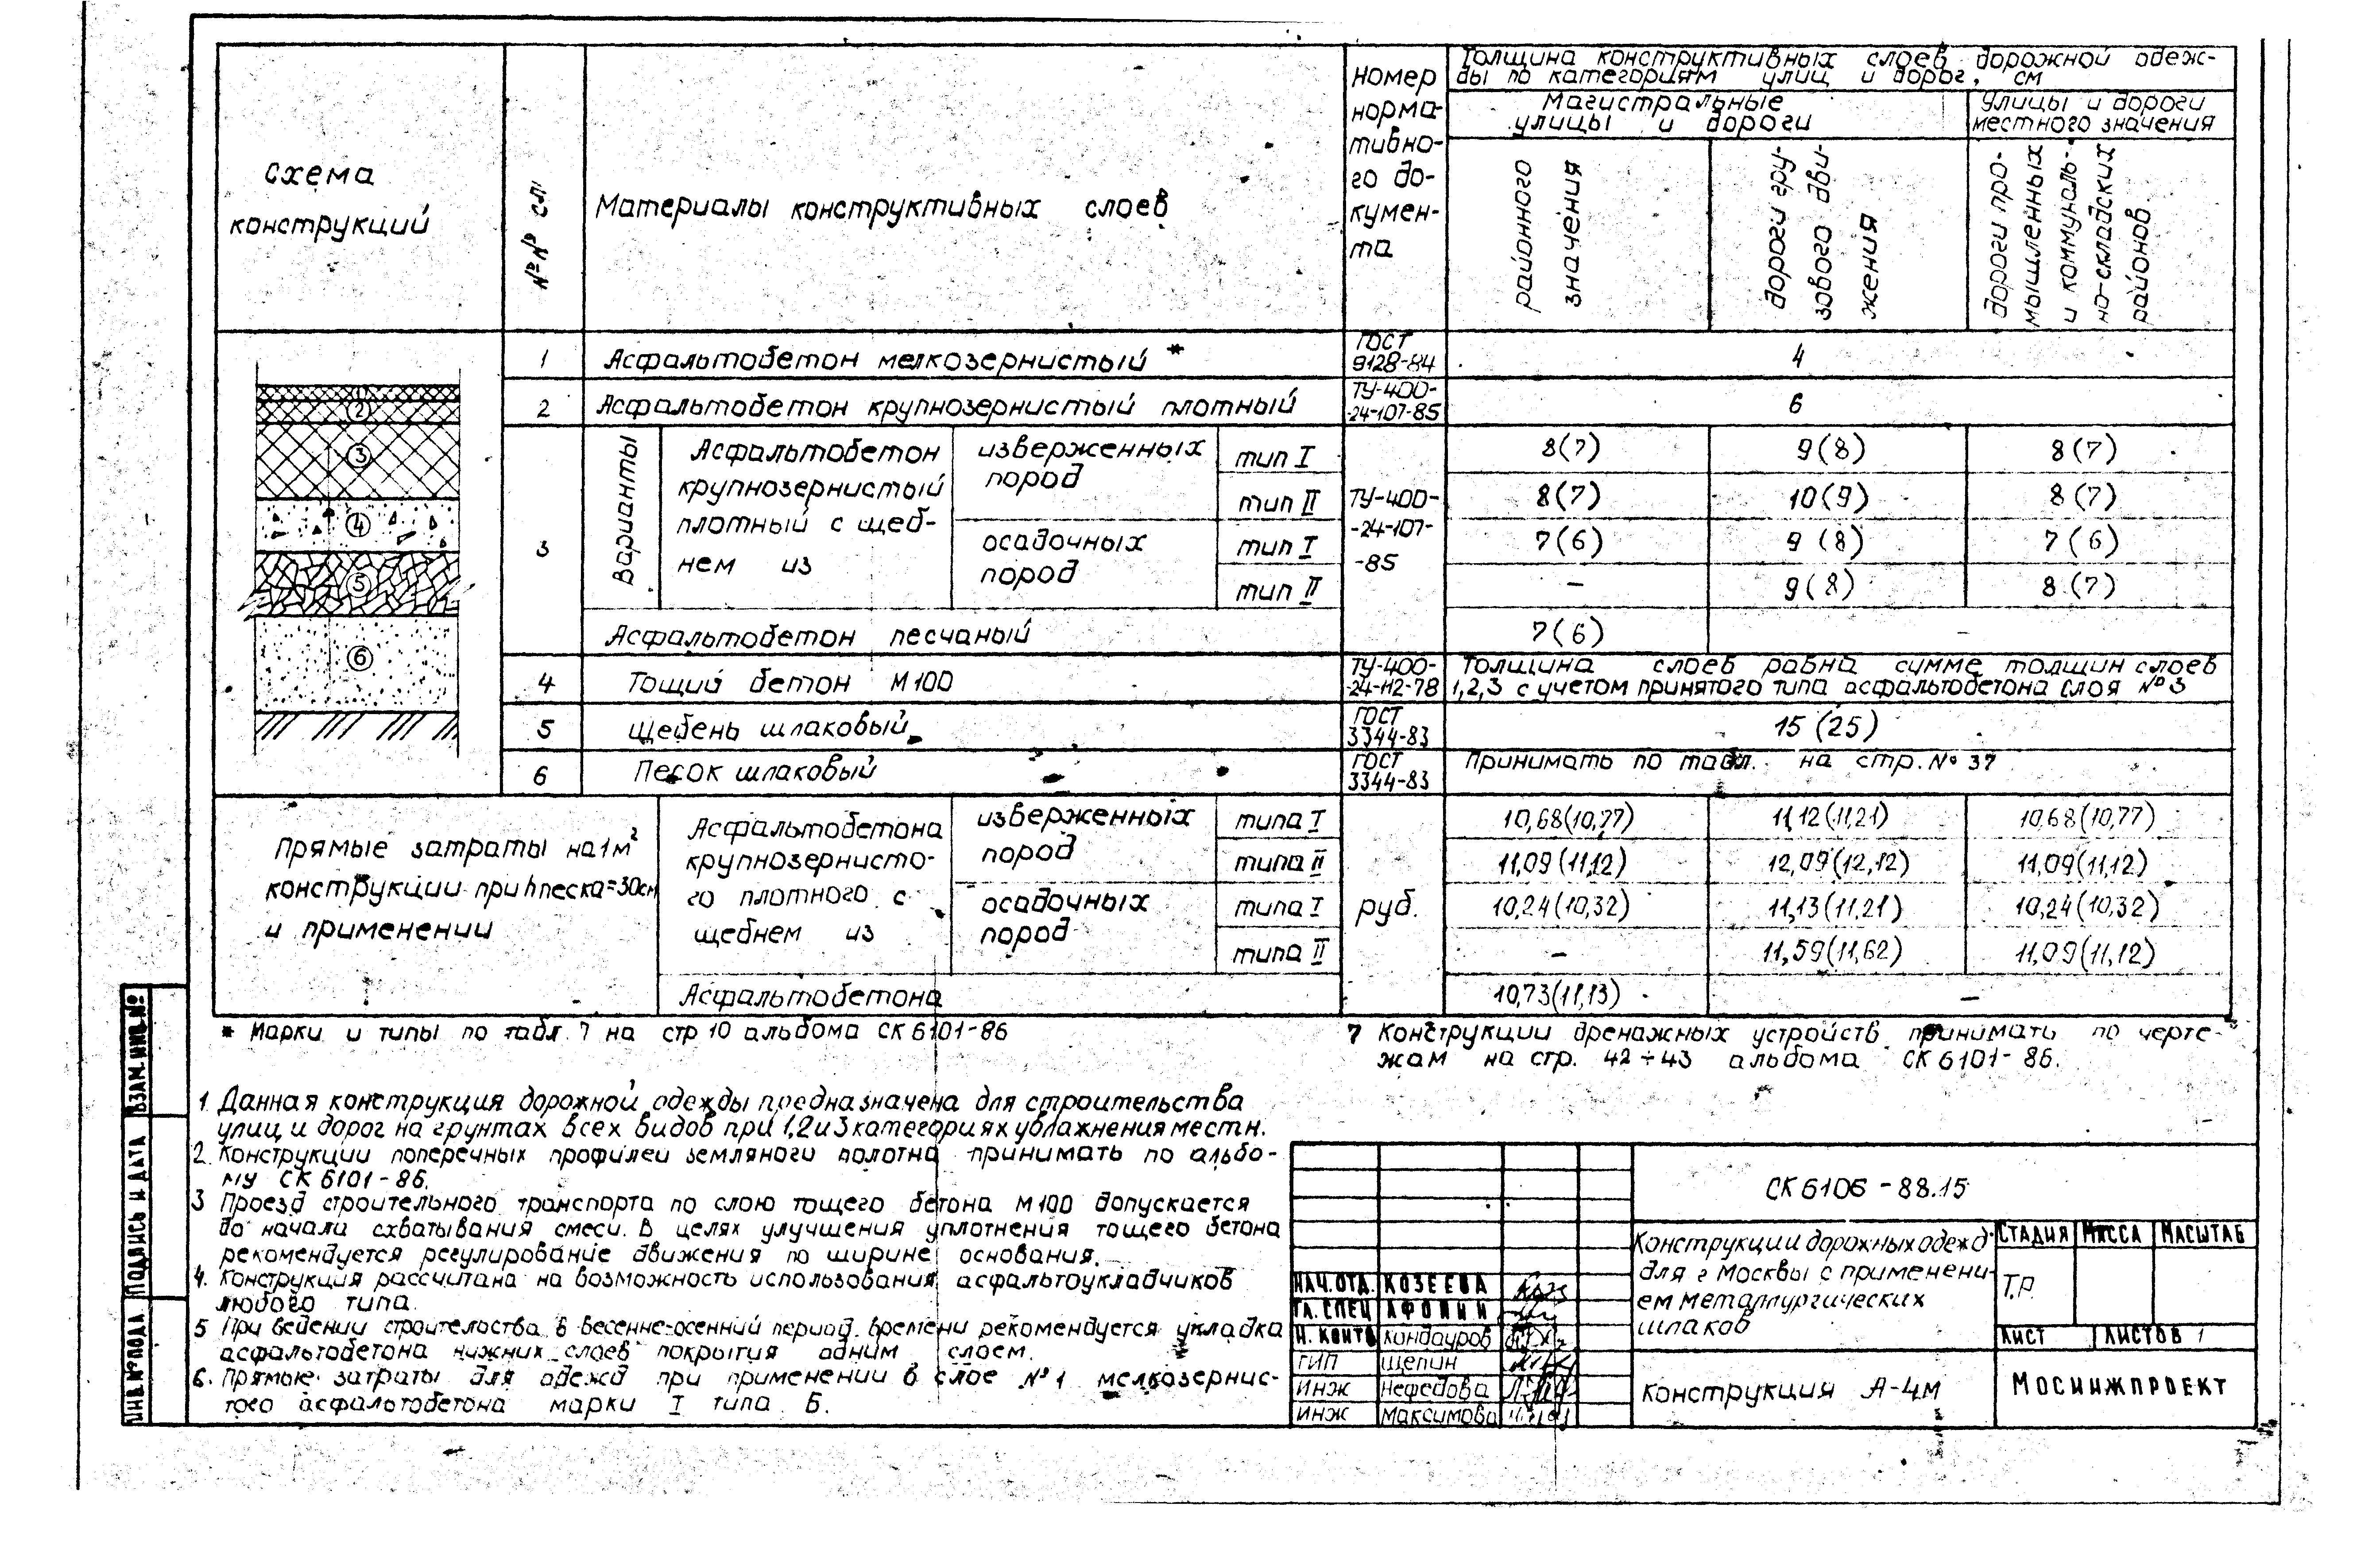 Схема
конструкций
№№ сл.
Материалы конструктивных слоев
Номер
норма-
тивно-
го до-
кумен-
та
Толщина конструктивных слоев дорожной одеж-
ды по категориям улиц и дорог, см
Магистральные
улицы и дороги
Улицы и дороги
местного значения
районного
значения
дороги гру-
зового дви-
жения
дороги про-
мышленных
и коммуналь-
но-складских
районов
1
Асфальтобетон мелкозернистый *
ГОСТ
9128-84
4
2
Асфальтобетон крупнозернистый плотный
ТУ-400-
-24-107-85
6
3
Варианты
Асфальтобетон
крупнозернистый
плотный с щеб-
нем из
изверженных
пород
тип I
8(7)
9(8)
8(7)
тип II
8(7)
10(9)
8(7)
осадочных
пород
тип I
7(6)
9(8)
7(6)
тип II
–
9(8)
8(7)
ТУ-400-
-24-107-
-85
Асфальтобетон песчаный
7(6)
–
4
Тощий бетон М100
ТУ-400-
-24-112-78
Толщина слоев равна сумме толщин слоев
1,2,3 с учетом принятого типа асфальтобетона слоя №3
5
Щебень шлаковый
ГОСТ
3344-83
15 (25)
6
Песок шлаковый
ГОСТ
3344-83
Принимать по табл. на стр. № 37
2
3
4
5
6
Прямые затраты на 1м²
конструкции при hпеска=30см
и применении
Асфальтобетона
крупнозернисто-
го плотного с
щебнем из
изверженных
пород
типа I
10,68(10,77)
11,12(11,21)
10,68(10,77)
типа II
11,09(11,12)
12,09(12,12)
11,09(11,12)
осадочных
пород
типа I
10,24(10,32)
11,13(11,21)
10,24(10,32)
типа II
–
11,59(11,62)
11,09(11,12)
руб.
Асфальтобетона
10,73(11,13)
–
* Марки и типы по табл. 7 на стр 10 альбома СК 6101-86
1. Данная конструкция дорожной одежды предназначена для строительства
улиц и дорог на грунтах всех видов при 1,2 и 3 категориях увлажнения местн.
2. Конструкции поперечных профилей земляного полотна принимать по альбо-
му СК 6101-86.
3 Проезд строительного транспорта по слою тощего бетона М100 допускается
до начала схватывания смеси. В целях улучшения уплотнения тощего бетона
рекомендуется регулирование движения по ширине основания.
4. Конструкция рассчитана на возможность использования асфальтоукладчиков
любого типа.
5 При ведении строительства в весенне-осенний период времени рекомендуется укладка
асфальтобетона нижних слоев покрытия одним слоем.
6. Прямые затраты для одежд при применении в слое №1 мелкозернис-
того асфальтобетона марки I типа Б.
7 Конструкции дренажных устройств принимать по черте-
жам на стр. 42÷43 альбома СК 6101-86.
СК 6106-88.15
Конструкции дорожных одежд
для г Москвы с применени-
ем металлургических
шлаков
Стадия Масса Масштаб
Т.Р.
Лист Листов 1
Конструкция А-4м
Мосинжпроект
Нач.отд. Козеева
Гл. спец Афонин
Н. контр Кондауров
ГИП Щепин
Инж Нефедова
Инж Максимова
Взам. инв. №
Подпись и дата
Инв. № подл